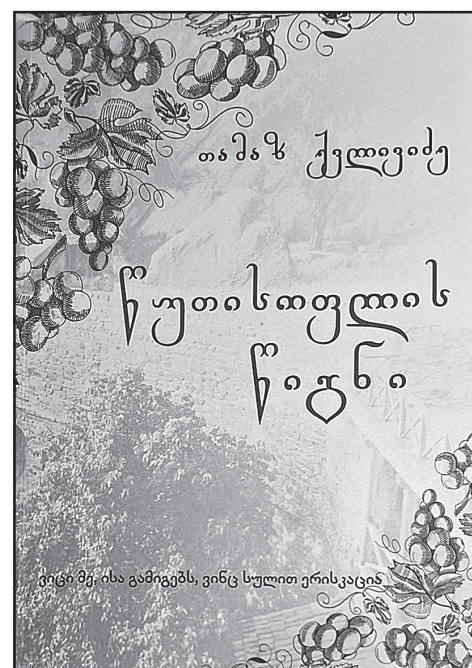 თამაზ ქვლივიძე
წუთისოფლის
წიგნი
ვიცი მე, ისა გამიგებს, ვინც სულით ერისკაცია